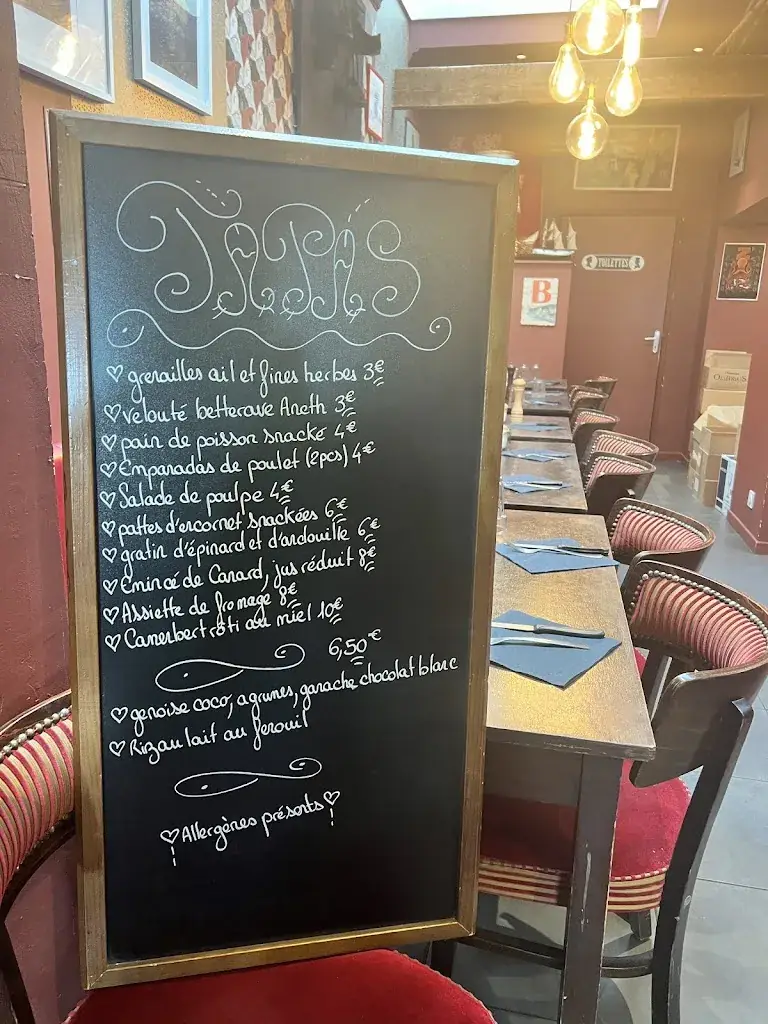 TAPAS
grenailles ail et fines herbes 3€
velouté betterave Aneth 3€
pain de poisson snacké 4€
Empanadas de poulet (2pcs) 4€
Salade de poulpe 4€
pattes d'encornet snackées 6€
gratin d'épinard et d'andouille 6€
Emincé de Canard, jus réduit 8€
Assiette de fromage 8€
Camenbert rôti au miel 10€
6,50€
genoise coco, agrumes, ganache chocolat blanc
Riz au lait au fenouil
Allergènes présents
TOILETTES
B